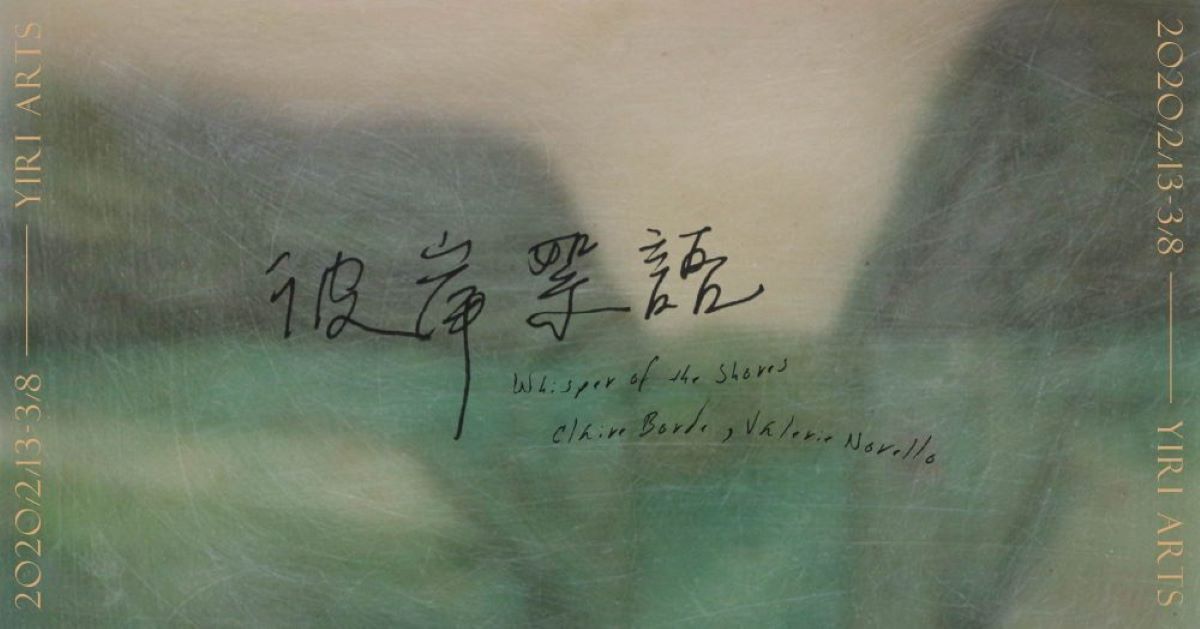 2020/2/13-3/8 —— YIRI ARTS
彼岸絮語
Whisper of the Shores
Claire Borde, Valerie Novello
2020/2/13-3/8 —— YIRI ARTS